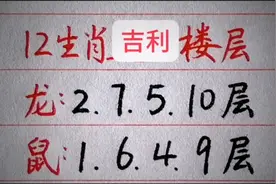 12生肖吉利楼层
龙:2.7.5.10层
鼠:1.6.4.9层